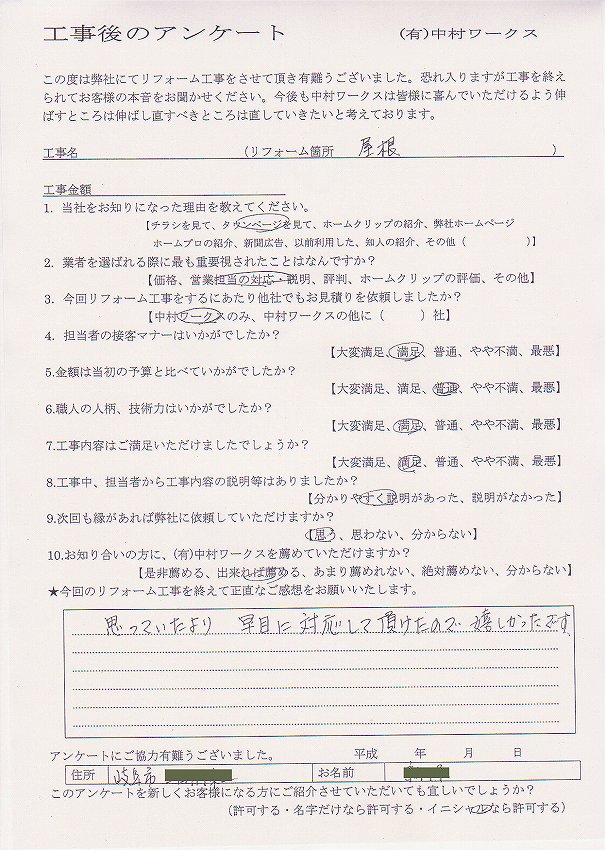 工事後のアンケート (有)中村ワークス
この度は弊社にてリフォーム工事をさせて頂き有難うございました。恐れ入りますが工事を終え
られてお客様の本音をお聞かせください。今後も中村ワークスは皆様に喜んでいただけるよう伸
ばすところは伸ばし直すべきところは直していきたいと考えております。
工事名 (リフォーム箇所 屋根 )
工事金額
1. 当社をお知りになった理由を教えてください。
【チラシを見て、タウンページを見て、ホームクリップの紹介、弊社ホームページ
ホームプロの紹介、新聞広告、以前利用した、知人の紹介、その他（ )】
2. 業者を選ばれる際に最も重要視されたことはなんですか?
【価格、営業担当の対応・説明、評判、ホームクリップの評価、その他】
3. 今回リフォーム工事をするにあたり他社でもお見積りを依頼しましたか?
【中村ワークスのみ、中村ワークスの他に（ ）社】
4. 担当者の接客マナーはいかがでしたか?
【大変満足、満足、普通、やや不満、最悪】
5.金額は当初の予算と比べていかがでしたか?
【大変満足、満足、普通、やや不満、最悪】
6.職人の人柄、技術力はいかがでしたか?
【大変満足、満足、普通、やや不満、最悪】
7.工事内容はご満足いただけましたでしょうか?
【大変満足、満足、普通、やや不満、最悪】
8.工事中、担当者から工事内容の説明等はありましたか?
【分かりやすく説明があった、説明がなかった】
9.次回も縁があれば弊社に依頼していただけますか?
【思う、思わない、分からない】
10.お知り合いの方に、(有)中村ワークスを薦めていただけますか?
【是非薦める、出来れば薦める、あまり薦めれない、絶対薦めない、分からない】
★今回のリフォーム工事を終えて正直なご感想をお願いいたします。
思っていたより 早目に対応して頂けたので 嬉しかったです
アンケートにご協力有難うございました。 平成 年 月 日
住所 岐阜市 お名前
このアンケートを新しくお客様になる方にご紹介させていただいても宜しいでしょうか?
(許可する・名字だけなら許可する・イニシャルなら許可する)